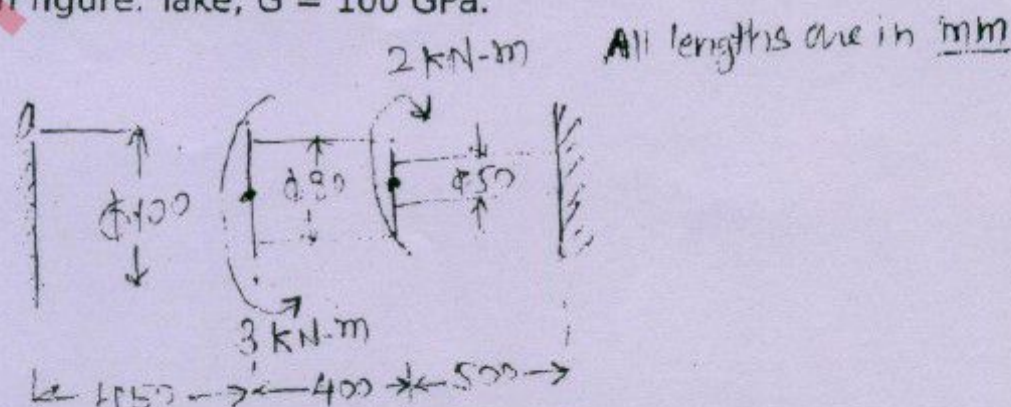 figure. Take, G = 100 GPa.
2 KN-m All lengths are in mm
ϕ100 ϕ80 ϕ50
3 KN-m
400 500